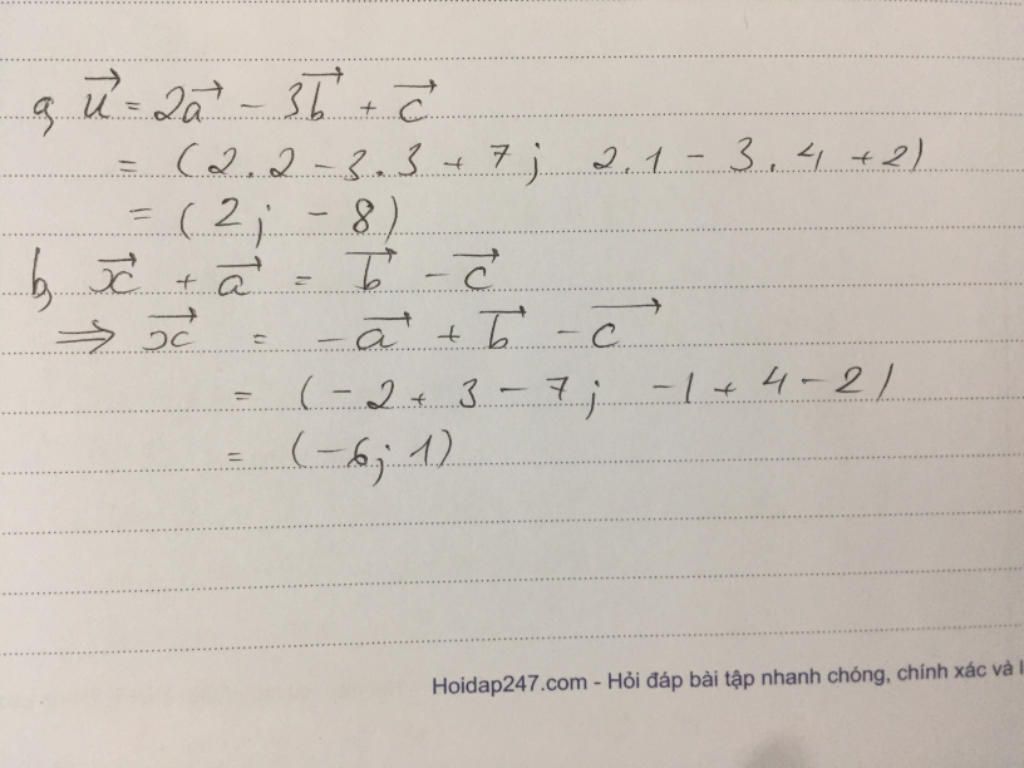 a, u⃗ = 2a⃗ - 3b⃗ + c⃗
= (2.2 - 3.3 + 7; 2.1 - 3.4 + 2)
= (2; -8)
b, x⃗ + a⃗ = b⃗ - c⃗
⇒ x⃗ = -a⃗ + b⃗ - c⃗
= (-2 + 3 - 7; -1 + 4 - 2)
= (-6; 1)
Hoidap247.com - Hỏi đáp bài tập nhanh chóng, chính xác và